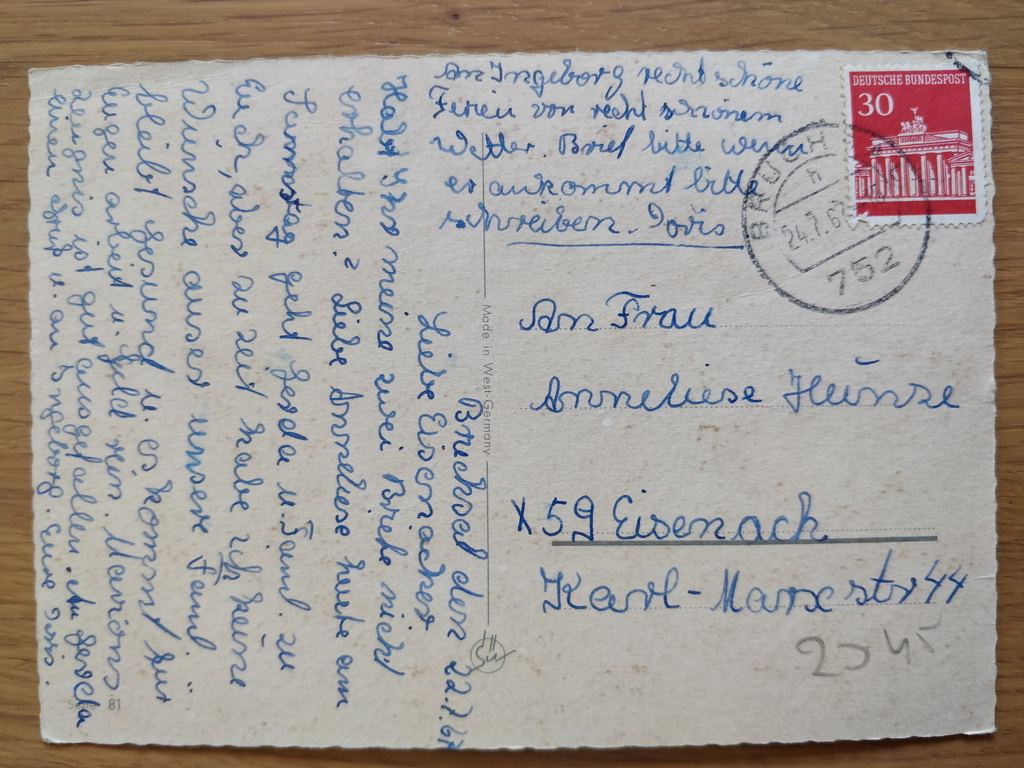 Bruchsal den 22.7.67
Liebe Eisenacher
Habt Ihr meine zwei Briefe nicht
erhalten? Liebe Anneliese heute am
Samstag geht Gerda u. Faml. zu
Euch, aber zu zeit habe ich keine
Wünsche auser unsere Faml
bleibt gesund u. es kommt für
Eugen arbeit u. Geld rein. Marions
Zeugnis ist gut ausgefallen. An Gerda
einen Gruß u. an Ingeborg. Eure Doris.
An Ingeborg recht schöne
Ferien von recht schönem
Wetter. Brief bitte wenn
er ankommt bitte
schreiben. Doris
DEUTSCHE BUNDESPOST
30
BRUCHS
h
24.7.67
752
An Frau
Anneliese Heünze
X 59 Eisenach
Karl-Marxstr 44
Made in West-Germany
81